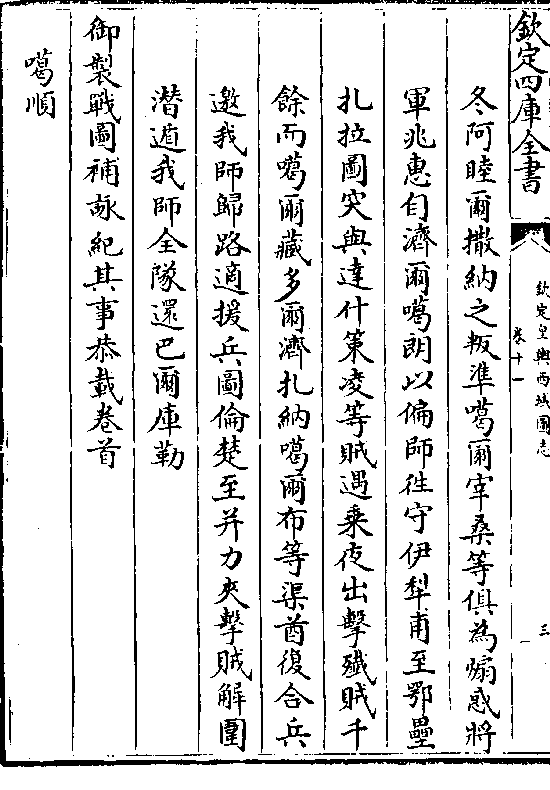 欽定四庫全書
欽定皇輿西域圖志
卷十一
三
冬阿睦爾撒納之叛準噶爾宰桑等俱為煽惑將
軍兆惠自濟爾噶朗以偏師徃守伊犁甫至鄂壘
扎拉圖突與達什策凌等賊遇乗夜出擊殲賊千
餘而噶爾藏多爾濟扎納噶爾布等渠酋復合兵
邀我師歸路適援兵圖倫楚至并力夾擊賊解圍
潛遁我師全隊還巴爾庫勒
御製戰圖補詠紀其事恭載卷首
噶順